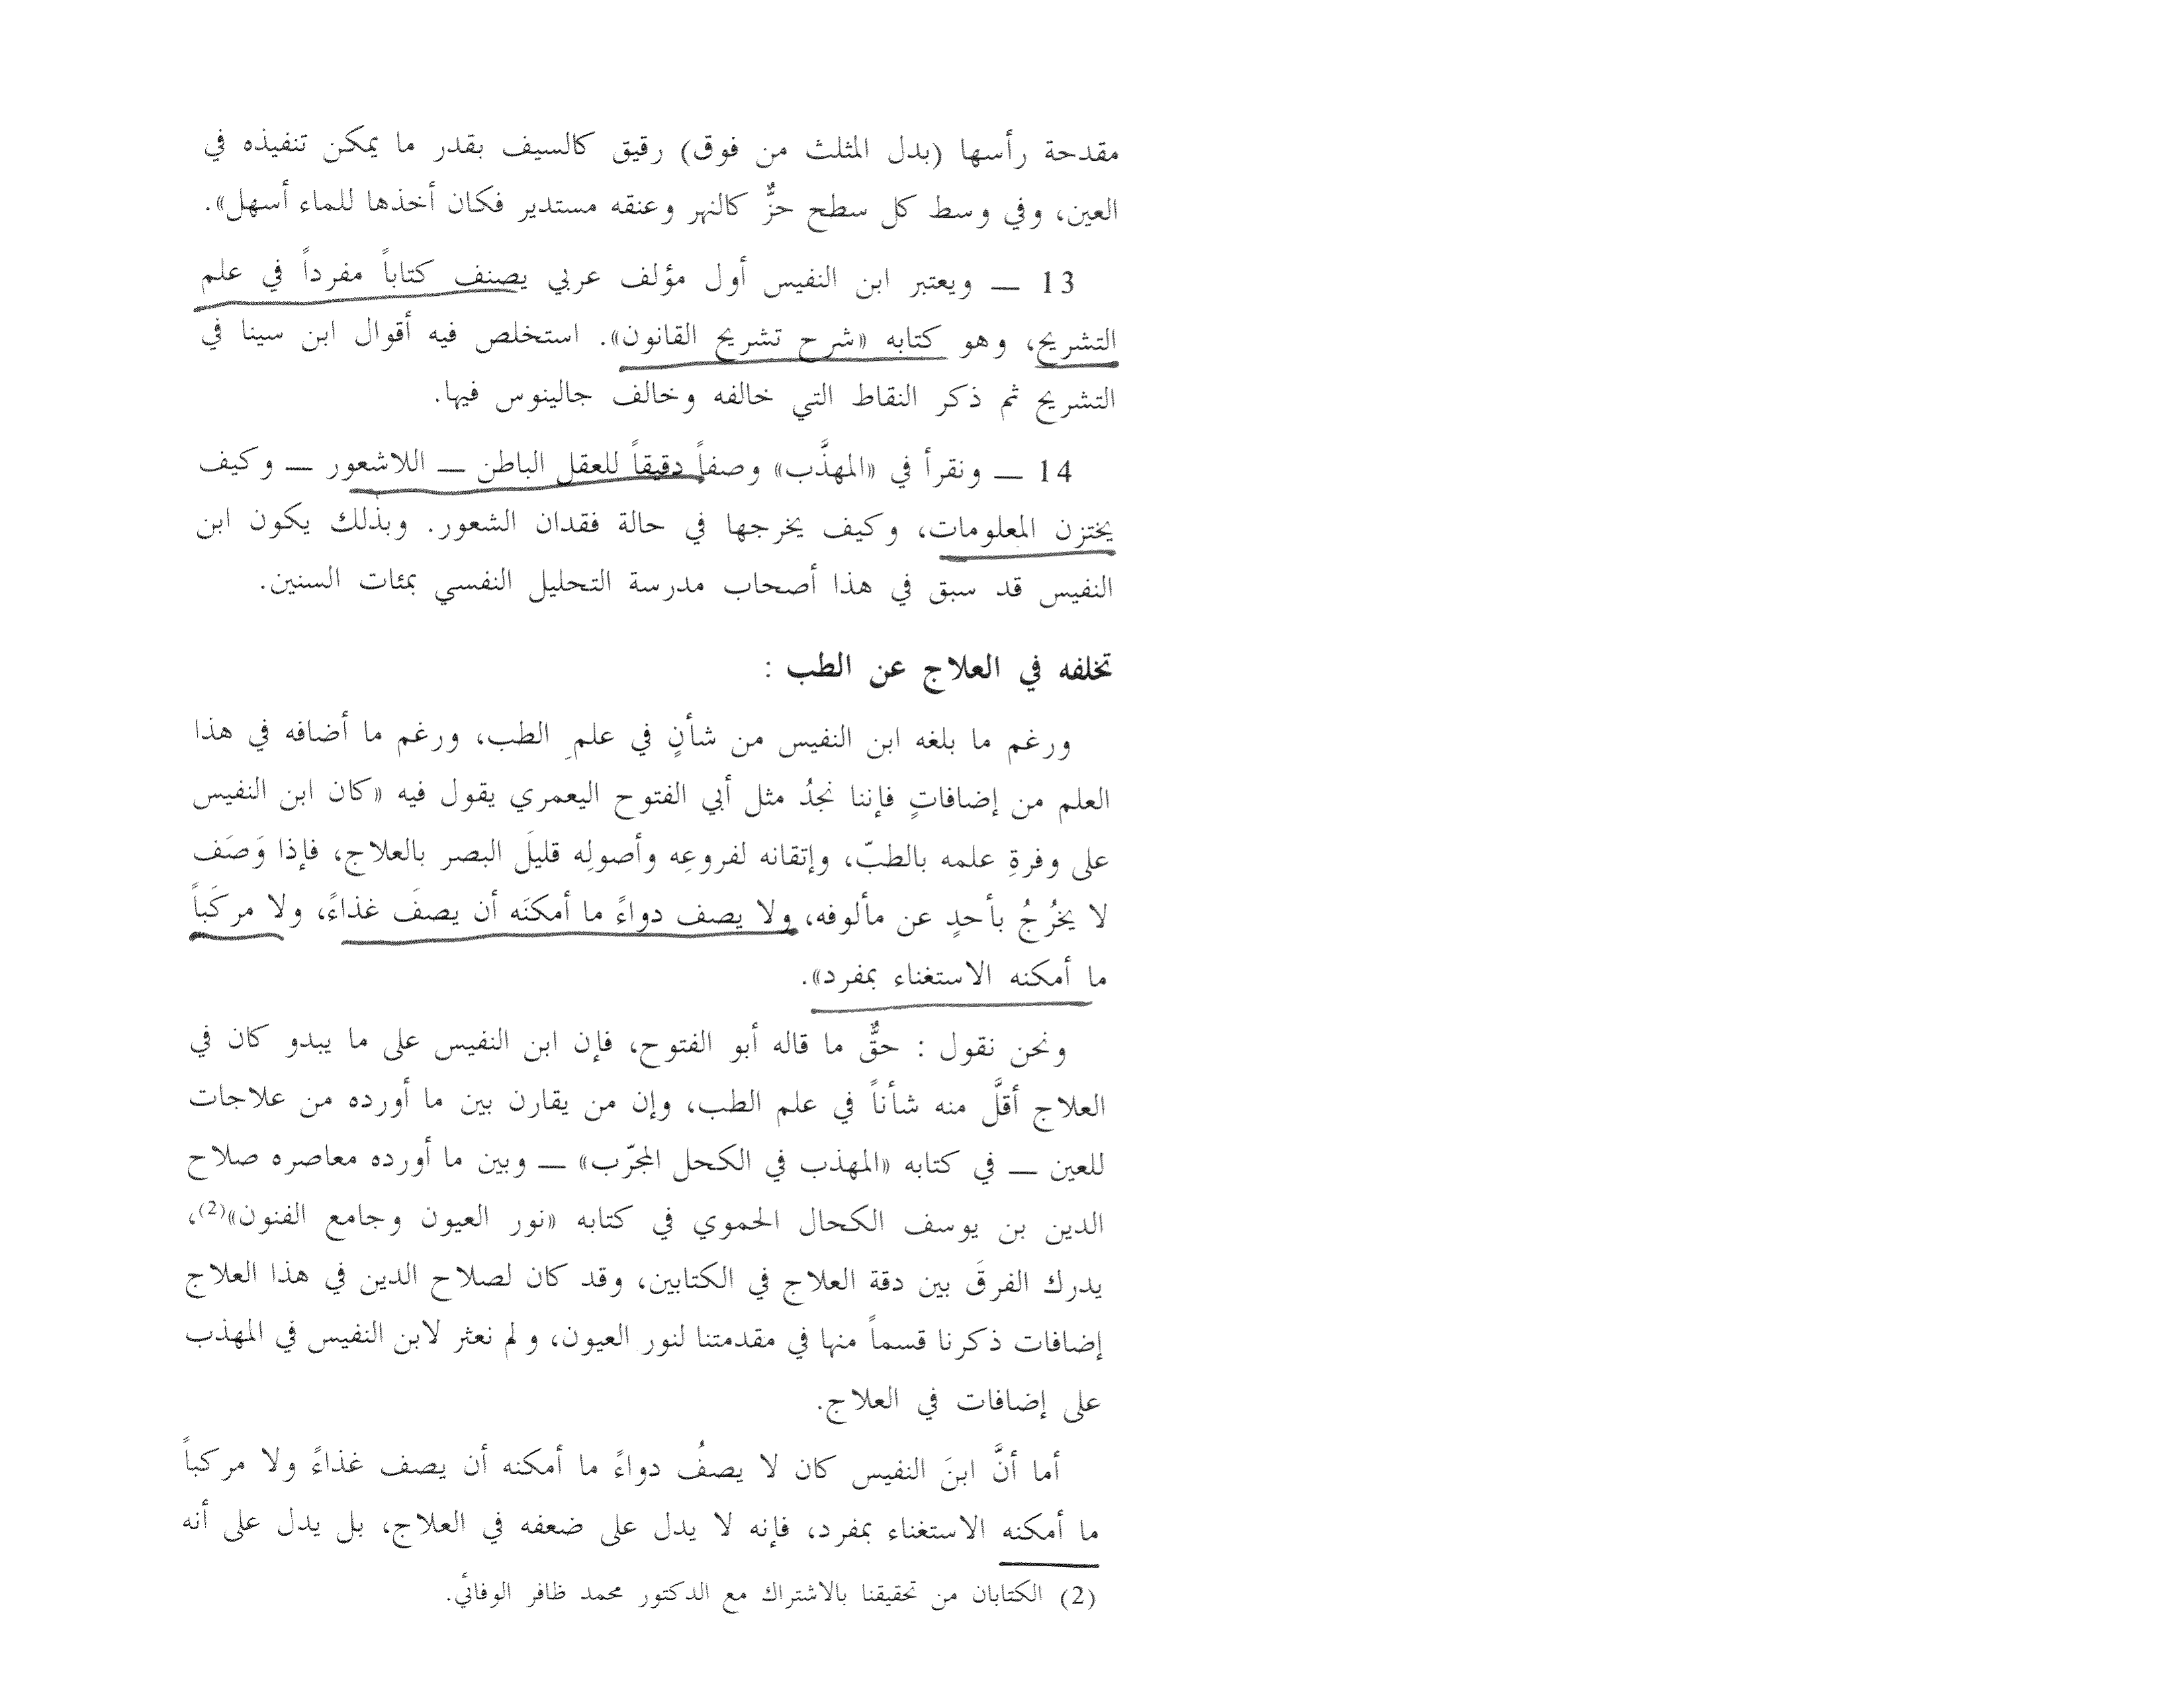 مقدحة رأسها (بدل المثلث من فوق) رقيق كالسيف بقدر ما يمكن تنفيذه في
العين، وفي وسط كل سطح حزٌّ كالنهر وعنقه مستدير فكان أخذها للماء أسهل».
13 — ويعتبر ابن النفيس أول مؤلف عربي يصنف كتاباً مفرداً في علم
التشريح، وهو كتابه «شرح تشريح القانون». استخلص فيه أقوال ابن سينا في
التشريح ثم ذكر النقاط التي خالفه وخالف جالينوس فيها.
14 — ونقرأ في «المهذَّب» وصفاً دقيقاً للعقل الباطن — اللاشعور — وكيف
يختزن المعلومات، وكيف يخرجها في حالة فقدان الشعور. وبذلك يكون ابن
النفيس قد سبق في هذا أصحاب مدرسة التحليل النفسي بمئات السنين.
تخلفه في العلاج عن الطب :
ورغم ما بلغه ابن النفيس من شأنٍ في علمِ الطب، ورغم ما أضافه في هذا
العلم من إضافاتٍ فإننا نجدُ مثل أبي الفتوح اليعمري يقول فيه «كان ابن النفيس
على وفرةِ علمه بالطبّ، وإتقانه لفروعِه وأصولِه قليلَ البصر بالعلاج، فإذا وَصَف
لا يخرُجُ بأحدٍ عن مألوفه، ولا يصف دواءً ما أمكنَه أن يصفَ غذاءً، ولا مركَباً
ما أمكنه الاستغناء بمفرد».
ونحن نقول : حقٌّ ما قاله أبو الفتوح، فإن ابن النفيس على ما يبدو كان في
العلاج أقلَّ منه شأناً في علم الطب، وإن من يقارن بين ما أورده من علاجات
للعين — في كتابه «المهذب في الكحل المجرّب» — وبين ما أورده معاصره صلاح
الدين بن يوسف الكحال الحموي في كتابه «نور العيون وجامع الفنون»(2)،
يدرك الفرقَ بين دقة العلاج في الكتابين، وقد كان لصلاح الدين في هذا العلاج
إضافات ذكرنا قسماً منها في مقدمتنا لنور العيون، ولم نعثر لابن النفيس في المهذب
على إضافات في العلاج.
أما أنَّ ابنَ النفيس كان لا يصفُ دواءً ما أمكنه أن يصف غذاءً ولا مركباً
ما أمكنه الاستغناء بمفرد، فإنه لا يدل على ضعفه في العلاج، بل يدل على أنه
(2) الكتابان من تحقيقنا بالاشتراك مع الدكتور محمد ظافر الوفائي.